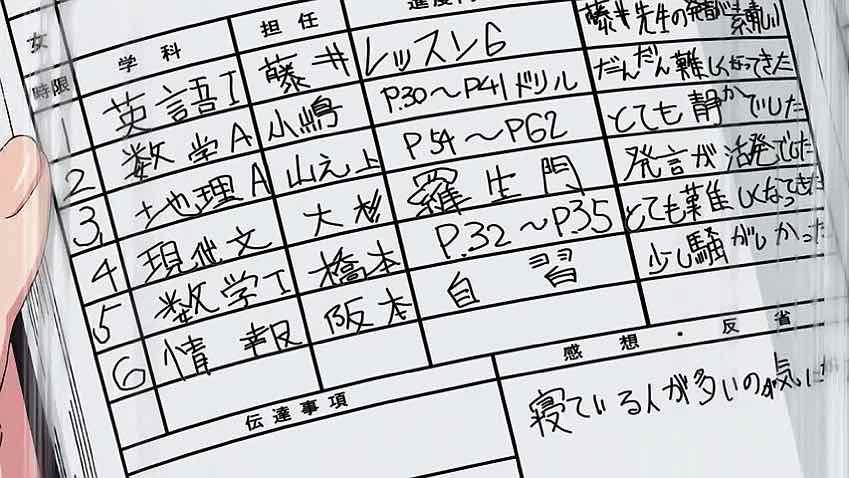 女 学科 担任 進度
時限
1 英語I 藤井 レッスン6 藤井先生の発音が素晴しい
2 数学A 小嶋 P.30〜P41ドリル だんだん難しくなってきた
3 地理A 山之上 P54〜P62 とても静かでした
4 現代文 大杉 羅生門 発言が活発でした
5 数学I 橋本 P.32〜P.35 とても難しくなってきた
6 情報 阪本 自習 少し騒がしかった
伝達事項 感想・反省
寝ている人が多いのが気に